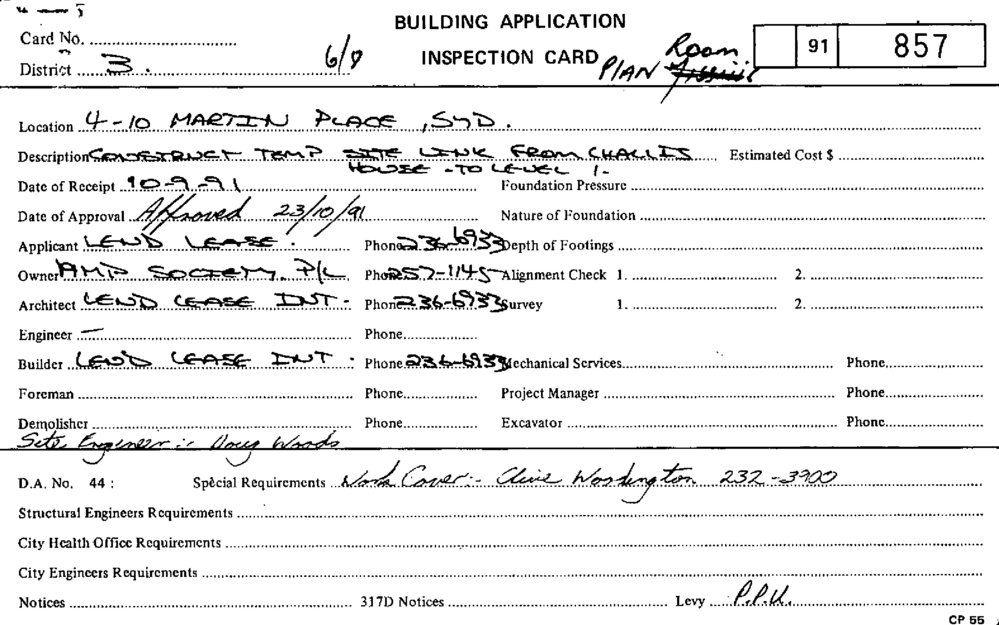 BUILDING APPLICATION
Card No.
INSPECTION CARD
PLAN Room
91 857
District 3.
6/9
Location 4-10 MARTIN PLACE, SYD.
Description CONSTRUCT TEMP SITE LINK FROM CHALLIS Estimated Cost $
HOUSE - TO LEVEL 1-
Date of Receipt 10-9-91 Foundation Pressure
Date of Approval Approved 23/10/91 Nature of Foundation
Applicant LEND LEASE. Phone 236-6933 Depth of Footings
Owner AMP SOCIETY P/L Phone 257-1145 Alignment Check 1. 2.
Architect LEND LEASE INT. Phone 236-6933 Survey 1. 2.
Engineer — Phone
Builder LEND LEASE INT. Phone 236-6933 Mechanical Services Phone
Foreman Phone Project Manager Phone
Demolisher Phone Excavator Phone
Site Engineer :- Doug Woods
D.A. No. 44 : Special Requirements Work Cover:- Clive Washington 232-3900
Structural Engineers Requirements
City Health Office Requirements
City Engineers Requirements
Notices 317D Notices Levy P.P.U.
CP 55